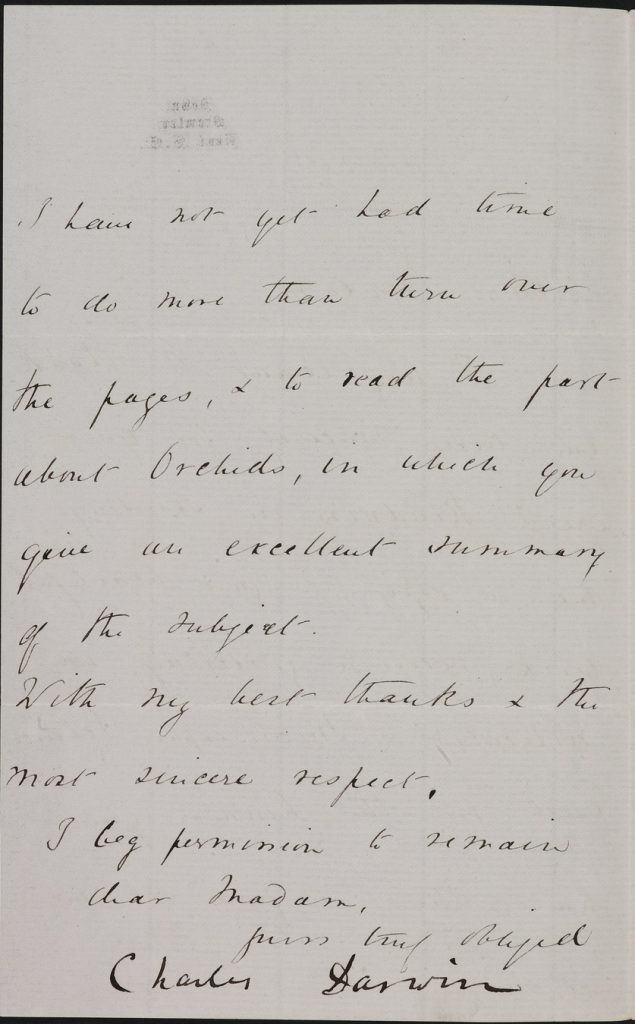 Down
Bromley
Kent. S.E.
I have not yet had time
to do more than turn over
the pages, & to read the part
about Orchids, in which you
give an excellent summary
of the subject.
With my best thanks & the
most sincere respect.
I beg permission to remain
dear Madam,
yours truly obliged
Charles Darwin